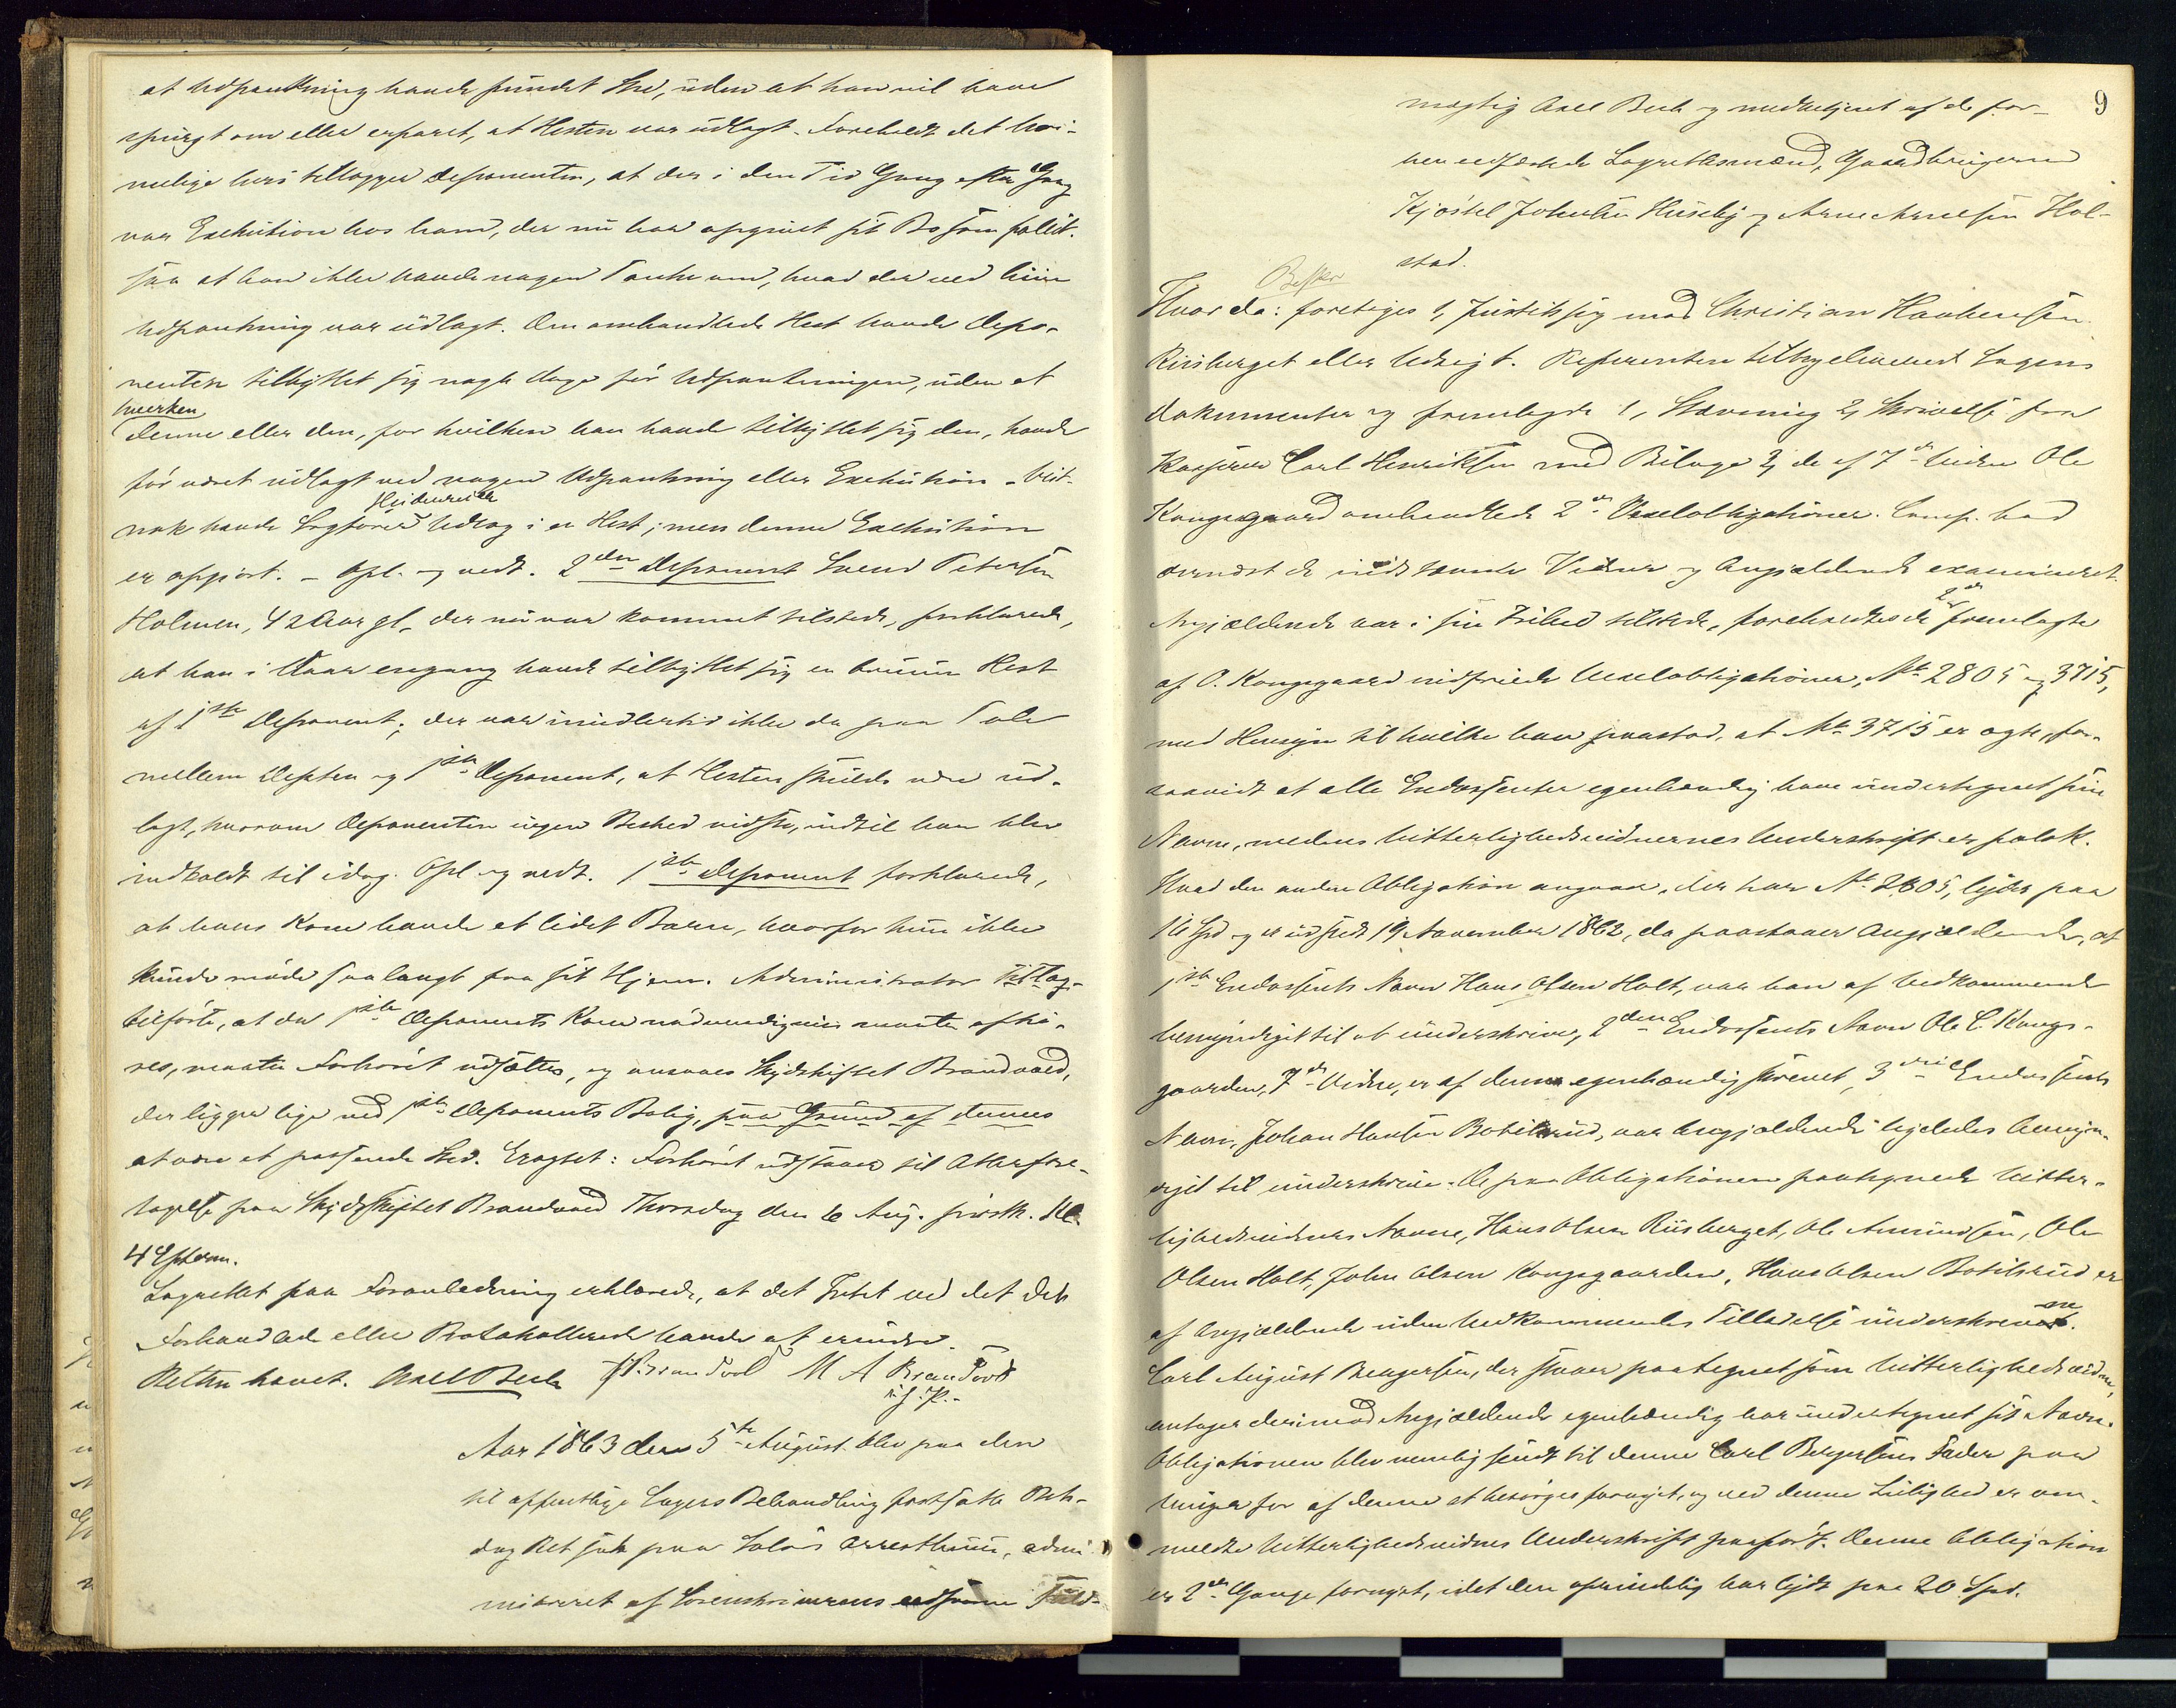 at Udpantning havde fundet Sted, uden at han vil have
spurgt om eller erfaret, at Hesten var udlagt. Foreholdt det hvi-
melige heri tillægger Deponenten, at der i den Tid Gang efter Gang
var Exekution hos ham, der nu har opgivet sit Bo som fallit.
saa at han ikke havde nogen Tanke om, hvad der ved hiin
Udpantning var udlagt. Den omhandlede Hest havde Depo-
nenten tilbyttet sig nogle Dage før Udpantningen, uden at
hverken
denne eller den, for hvilken han havde tilbyttet sig den, havde
før været udlagt ved nogen Udpantning eller Exekution. Vist-
Heidenreich
nok havde Sagfører Udlæg i en Hest; men denne Exekution
er opgjort. - Opl. og vedt. 2den Deponent Svend Petersen
Holmen, 42 Aar gl., der nu var kommet tilstede, forklarede,
at han i Vaar engang havde tilbyttet sig en bruun Hest
af 1ste Deponent; der var imidlertid ikke da paa Tale
mellem Depten og 1ste Deponent, at Hesten skulde være ud-
lagt, hvorom Deponenten ingen Besked vidste, indtil han blev
indkaldt til idag. Opl. og vedt. 1ste Deponent forklarede,
at hans Kone havde et lidet Barn, hvorfor hun ikke
kunde møde saa langt fra sit Hjem. Administrator Tit Tog-
tilførte, at da 1ste Deponents Kone nødvendigviis maatte afhø-
res, maatte Forhøret udsættes, og ansaaes Skydskiftet Brandvold,
der ligger lige ved 1ste Deponents Bolig, paa Grund af dennes
at være et passende Sted. Eragtet: Forhøret udstaaer til Atterfore-
tagelse paa Skydsskiftet Brandvold Thorsdag den 6 Aug. førstk. Kl.
4 Efterm.
Lagrettet paa Foranledning erklærede, at det Intet ved det det
Forhandlede eller Protokollerede havde at erindre.
Retten hævet. Axel Bech M A Brandvold
m. f. P.
Aar 1863 den 5te August blev paa den
til offentlige Sagers Behandling fastsatte Rets-
dag Ret sat paa Soløs Arresthuus, admi-
nistreret af Sorenskriverens edsvorne Fuld-
9
mægtig Axel Bech og medbetjent af de for-
hen edfæstede Lagrettesmænd, Gaardbrugerne
Kjøstel Johnsen Huseby og Arne Arnesen Hol-
stad.
Hvor da: foretoges 1, Justitssag mod Christian Haakensen
Riisberget eller Udsigt. Referenten tilkjendegav Sagens
Dokumenter og fremlagde 1, Stævning 2, Skrivelse fra
Kasserer Carl Henriksen med Bilage 3, de af 7de Vidne Ole
Kongsgaard omhandlede 2de Vexelobligationer. Comp. bad
dernæst de indstævnte Vidner og Angjældende examineret.
2de
Angjældende var i sin Frihed tilstede, foreholdtes de fremlagte
af O. Kongsgaard indfriede Vexelobligationer, No 2805 og 3715,
med Hensyn til hvilke han paastod, at No 3715 er ægte, for-
saavidt at alle Endossenter egenhændig have undertegnet sine
Navne, medens Vitterlighedsvidnernes Underskrift er falsk.
Hvad den anden Obligation angaaer, der har No 2805, lyder paa
16 Spd og er udstedt 19 November 1862, da paastaaer Angjældende, at
1ste Endossents Navn Hans Olsen Holt, var han af Vedkommende
bemyndiget til at underskrive, 2den Endossents Navn Ole C. Kongs-
gaarden, 7de Vidne, er af denne egenhændig skrevet, 3die Endossents
Navn, Johan Hansen Botilsrud, var Angjældende ligeledes bemyn-
diget til underskrive. De paa Obligationen paategnede Vitter-
lighedsvidners Navne, Hans Olsen Riisberget, Ole Amundsen, Ole
Olsen Holt, John Olsen Kongsgaarden, Hans Olsen Botilsrud er
af Angjældende uden Vedkommendes Tilladelse underskrevne.
Carl August Bengersen, der staaer paategnet som Vitterlighedsvidne,
antager derimod Angjældende egenhændig har undertegnet sit Navn.
Obligationen blev nemlig sendt til denne Carl Bergersens Fader paa
Kongsv for af denne at besørges fornyet, og ved denne Leilighed er an-
meldte Vitterlighedsvidnes Underskrift paaført. Denne Obligation
er 2de Gange fornyet, idet den oprindelig har lydt paa 20 Spd.